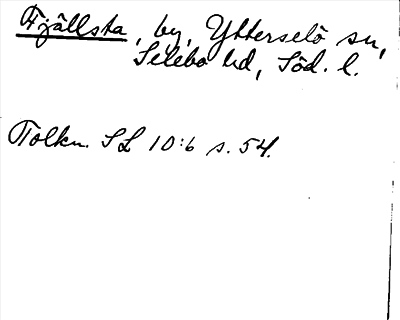 Fjällsta, by, Ytterselö sn,
Selebo hd, Söd. l.
Tolkn. SL 10:6 s. 54.